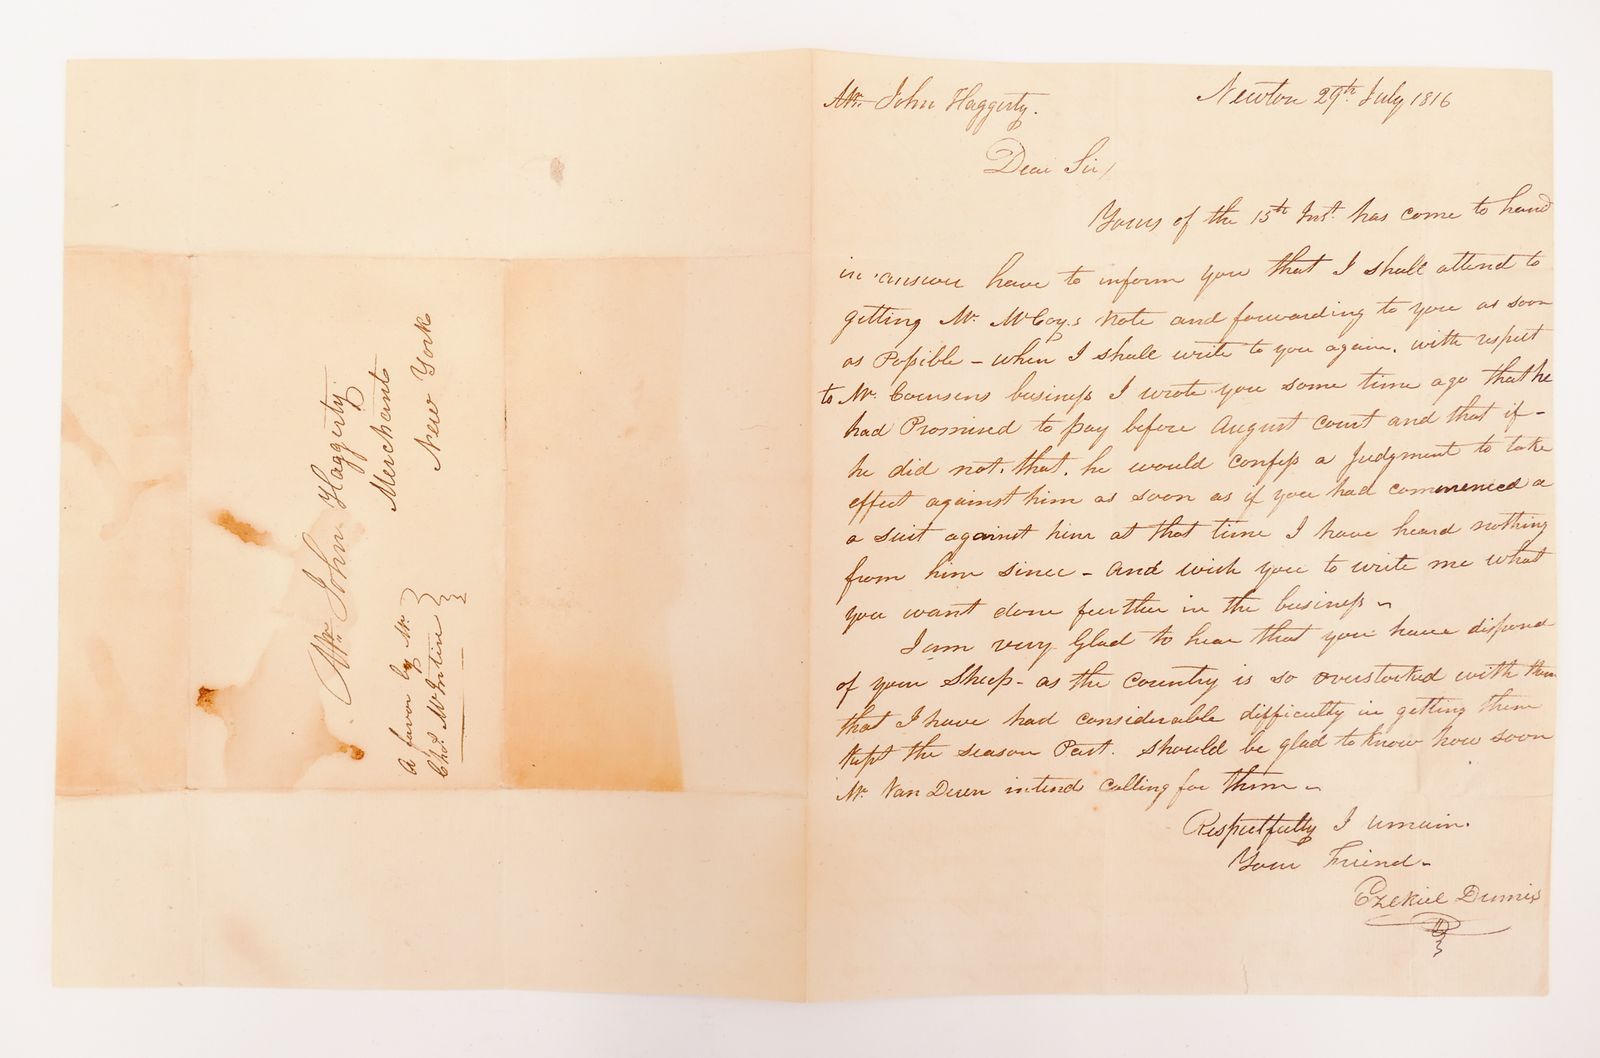 Mr. John Haggerty
Merchant
New York
A favor by Mr.
Chos. McIntire
Mr. John Haggerty.
Newton 29th. July 1816
Dear Sir/
Yours of the 15th Inst. has come to hand
in answer have to inform you that I shall attend to
getting Mr. McCoy,s Note and forwarding to you as soon
as Possible – when I shall write to you again. with respect
to Mr. Coursens business I wrote you some time ago that he
had Promised to pay before August court and that if –
he did not. that. he would confess a Judgment to take
effect against him as soon as if you had commenced a
a suit against him at that time I have heard nothing
from him since – and wish you to write me what
you want done further in the business ~
I am very Glad to hear that you have disposed
of your Sheep – as the Country is so overstocked with them
that I have had considerable difficulty in getting them
kept the season Past. should be glad to know how soon
Mr. Van Deren intends calling for them ~
Respectfully I remain.
Your Friend –
Ezekiel Dennis